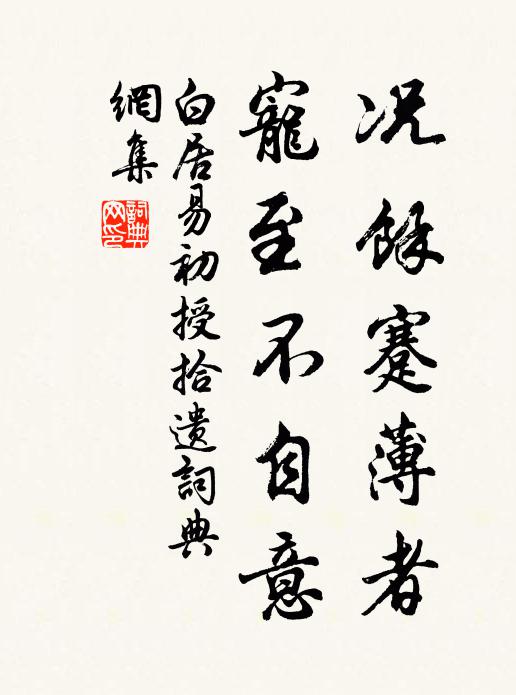 况餘蹇薄者
寵至不自意
白居易初授拾遺詞典
網集
詞典網印